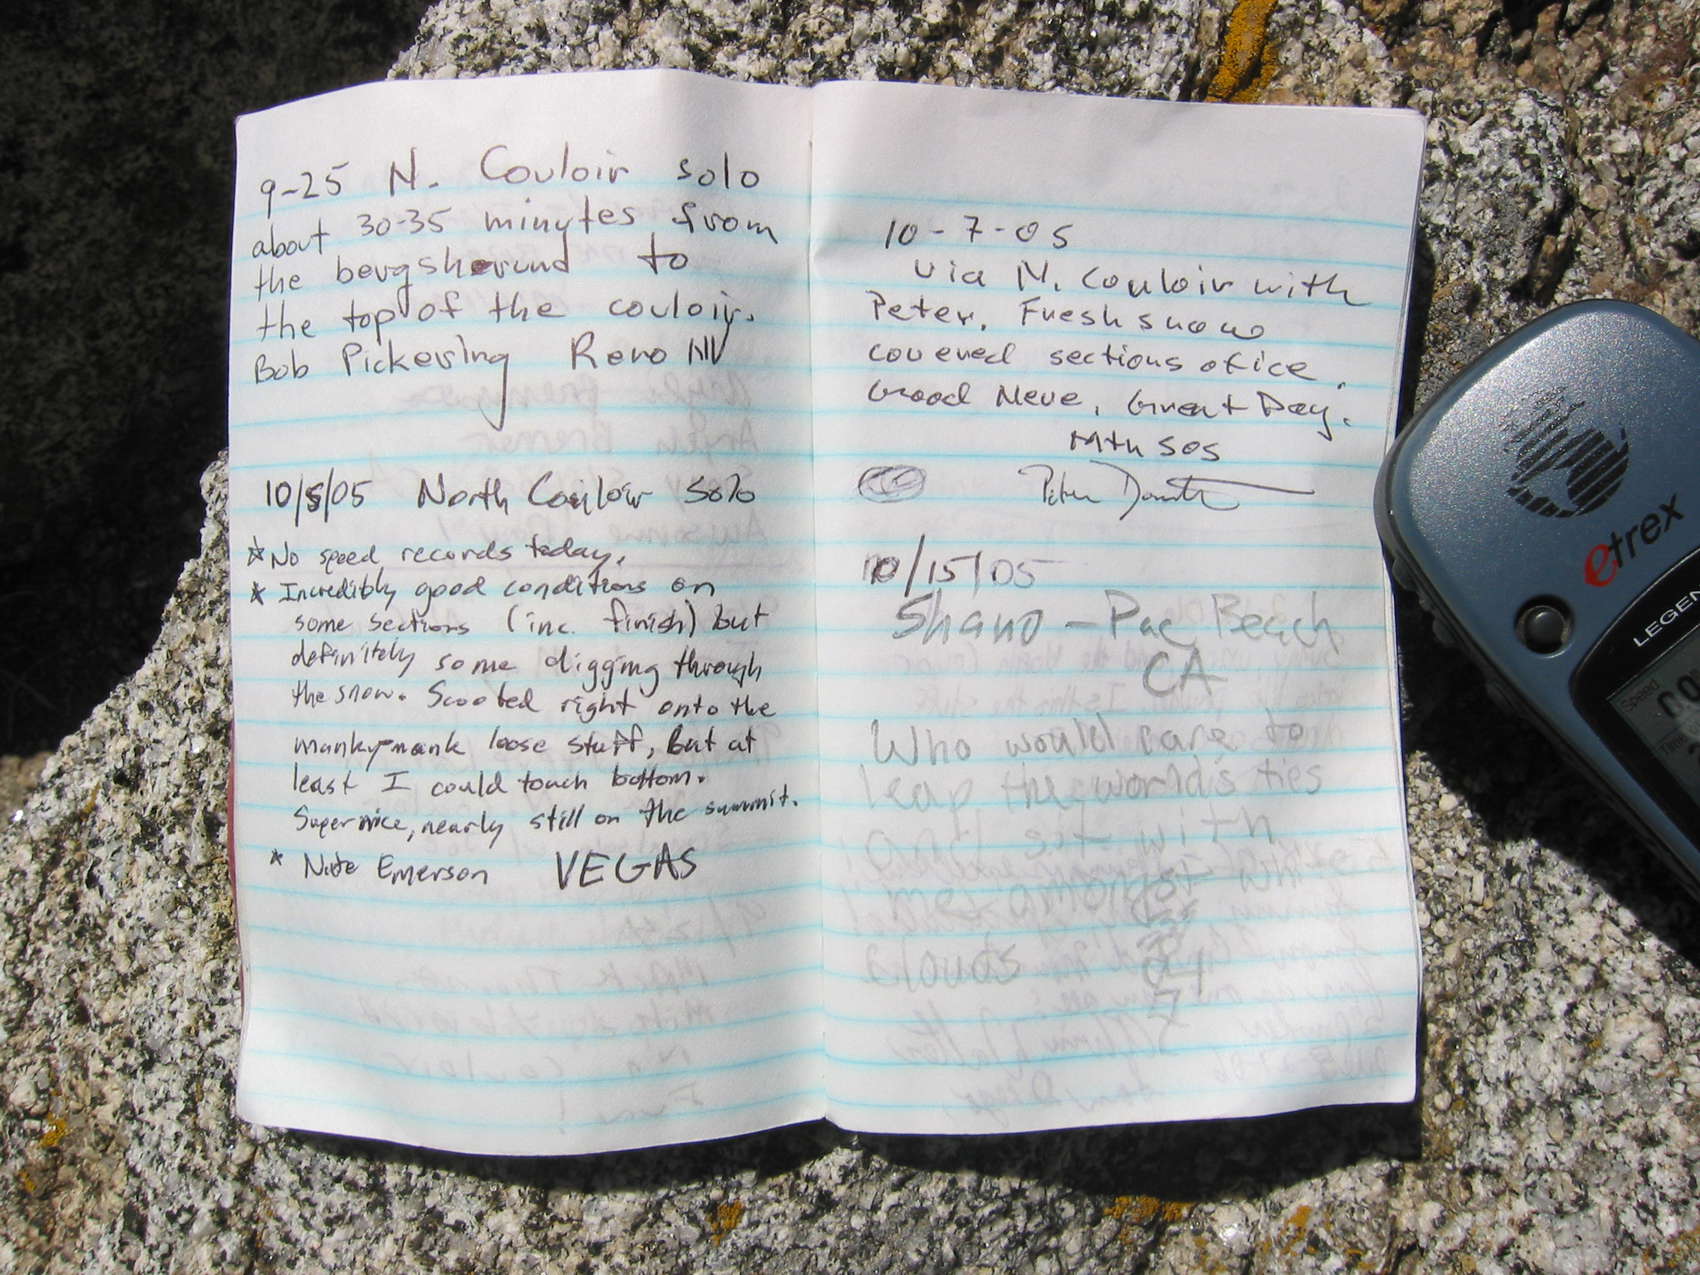 9-25 N. Couloir solo
about 30-35 minytes from
the bergshorund to
the top of the couloir.
Bob Pickering Reno NV
10/5/05 North Couloir Solo
* No speed records today.
* Incredibly good conditions on
some sections (inc. finish) but
definitely some digging through
the snow. Scooted right onto the
manky-mank loose stuff, but at
least I could touch bottom.
Supernice, nearly still on the summit.
* Nate Emerson VEGAS
10-7-05
via N. Couloir with
Peter. Fresh snow
covered sections of ice.
Good Neve, Great Day.
Mtn SOS
Peter
10/15/05
Shano - Pac Beach
CA
Who would care to
leap the world's ties
and sit with
me amongst
clouds
etrex
LEGEN
Speed